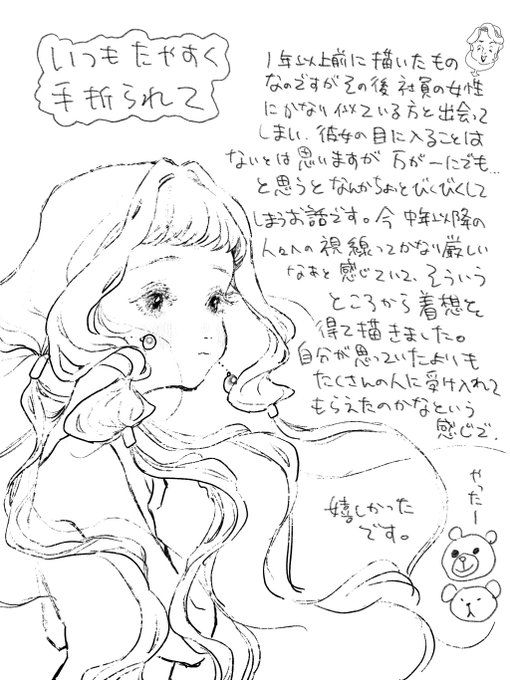 いつもたやすく
手折られて
1年以上前に描いたもの
なのですがその後社員の女性
にかなり似ている方と出会って
しまい、彼女の目に入ることは
ないとは思いますが万が一にでも…
と思うとなんかちょっとびくびくして
しまうお話です。今中年以降の
人々への視線ってかなり厳しい
なぁと感じていて、そういう
ところから着想を
得て描きました。
自分が思っていたよりも
たくさんの人に受け入れて
もらえたのかなという
感じで、
嬉しかった
です。
やったー